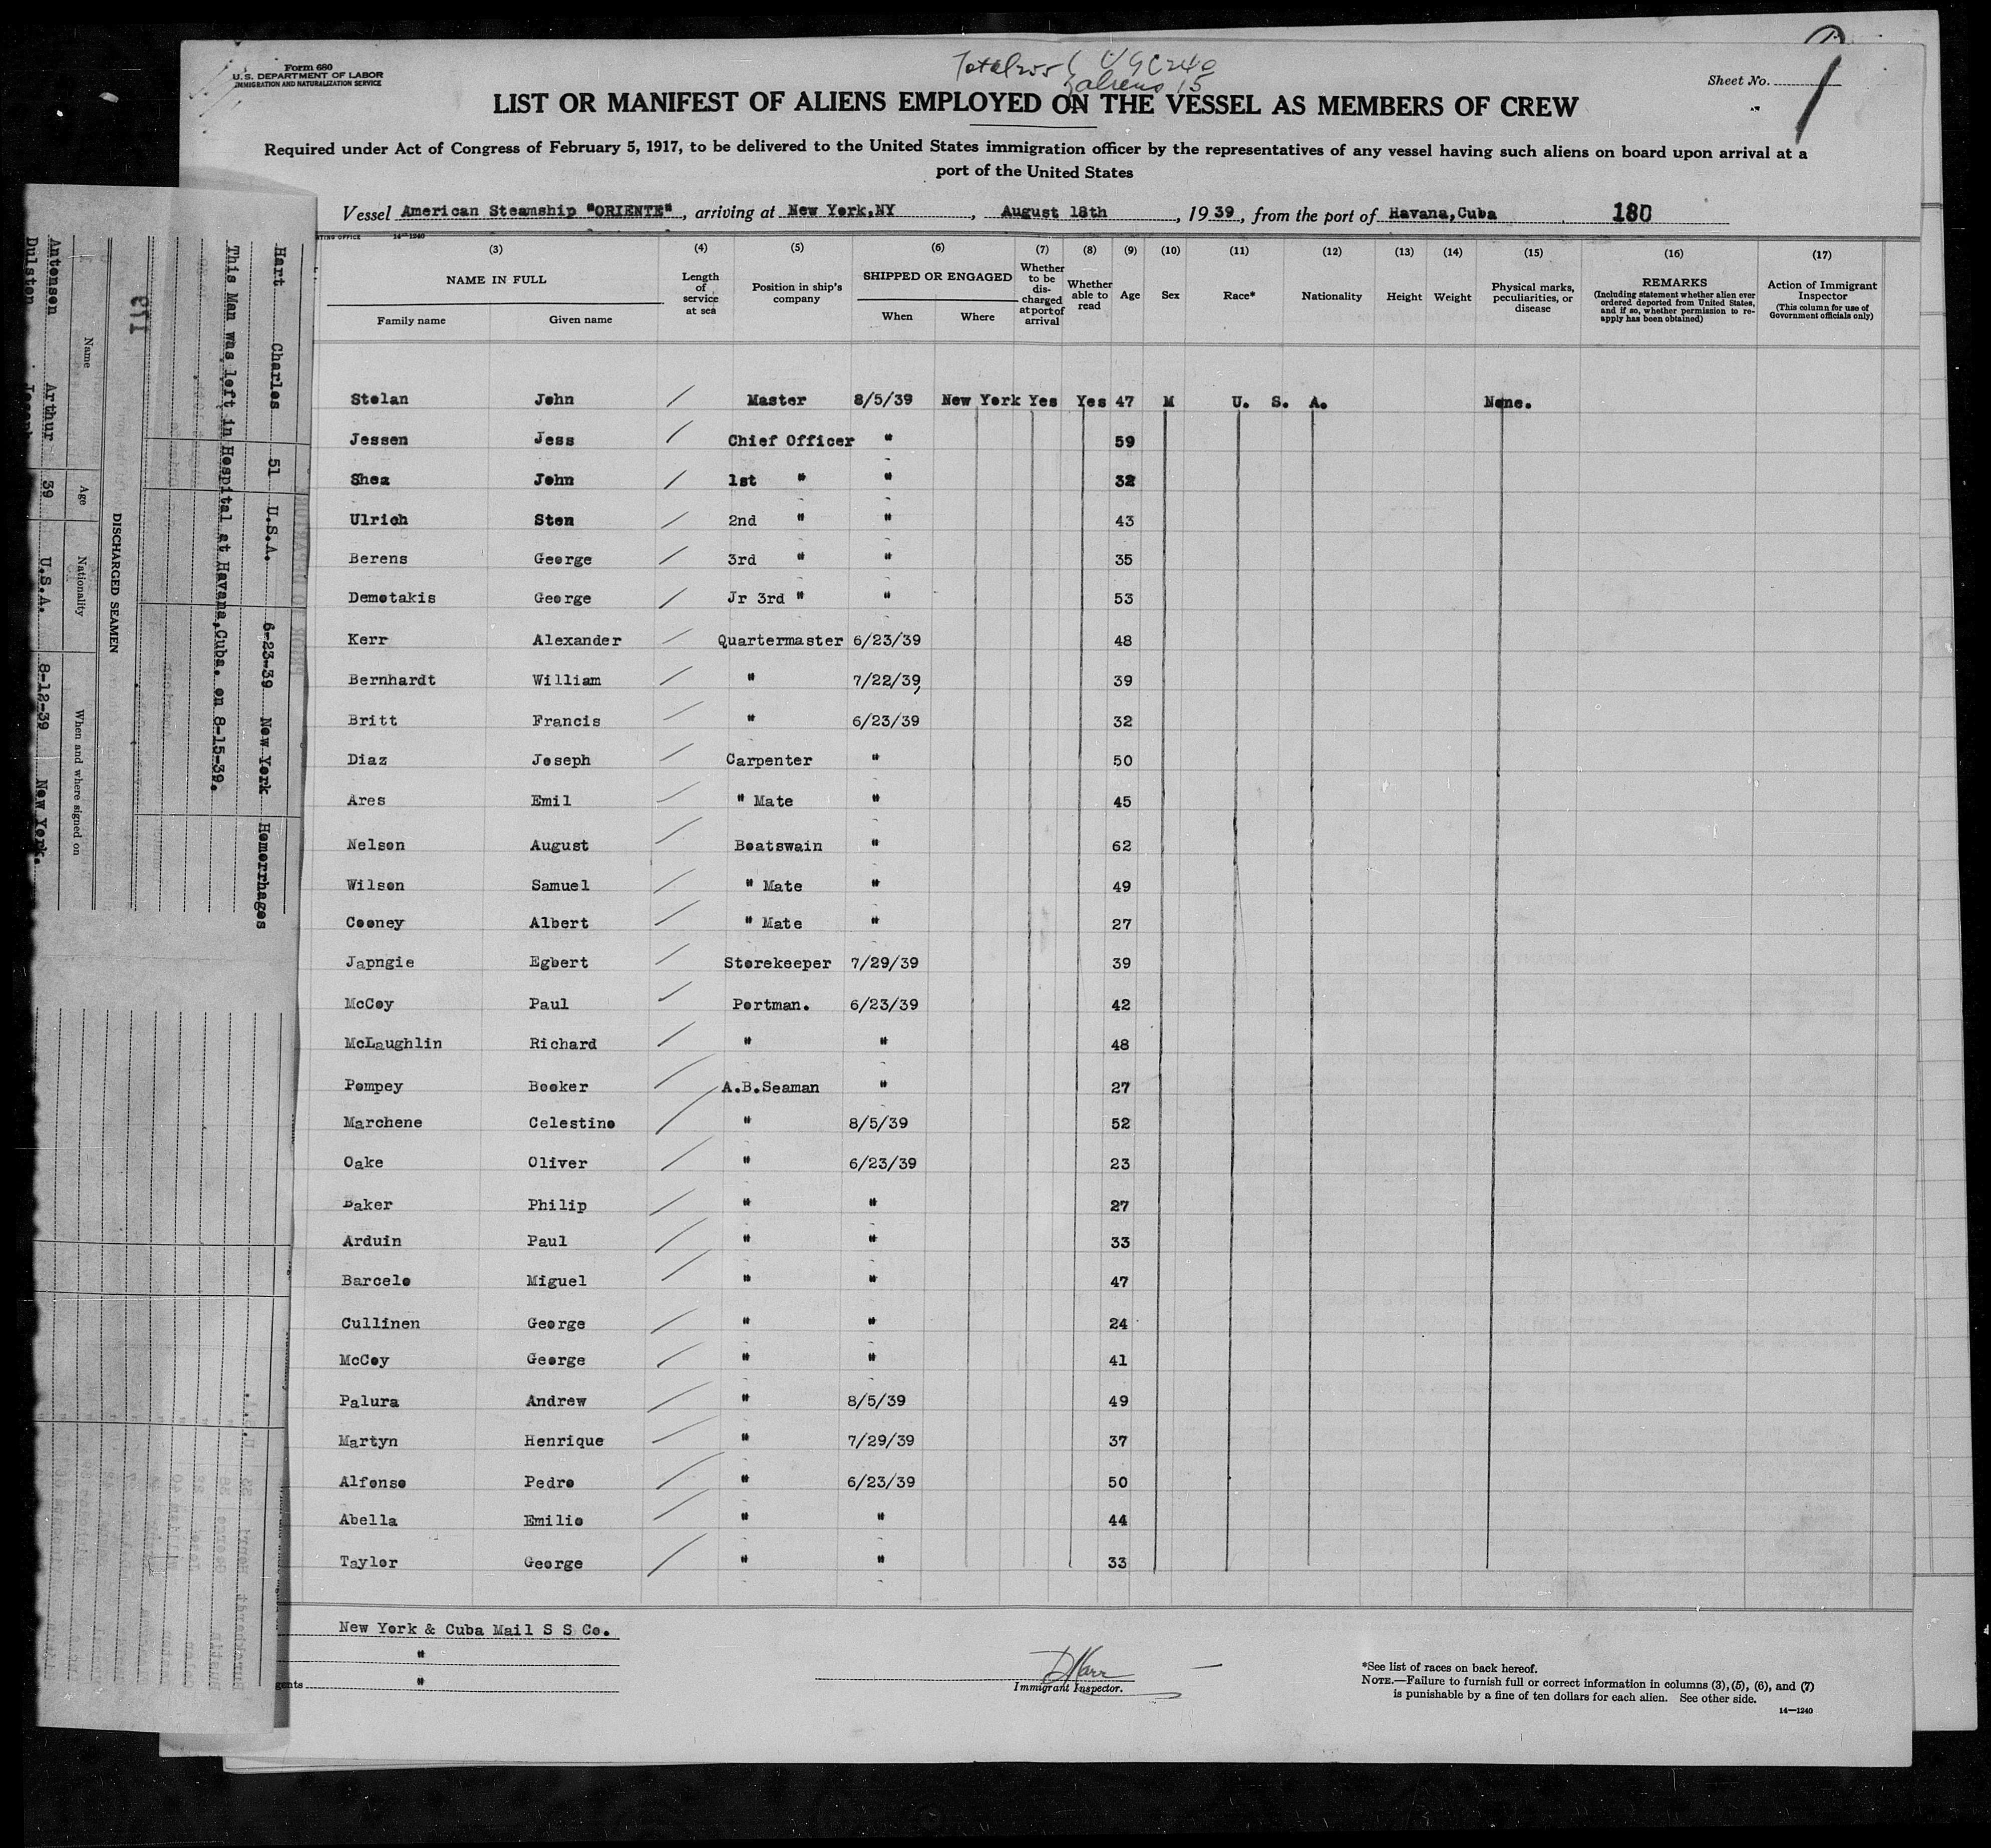 Form 680
U.S. DEPARTMENT OF LABOR
IMMIGRATION AND NATURALIZATION SERVICE
Total 255 { USC 240
{ aliens 15
Sheet No. 1
LIST OR MANIFEST OF ALIENS EMPLOYED ON THE VESSEL AS MEMBERS OF CREW
Required under Act of Congress of February 5, 1917, to be delivered to the United States immigration officer by the representatives of any vessel having such aliens on board upon arrival at a
port of the United States
Vessel American Steamship "ORIENTE", arriving at New York,NY, August 18th, 1939, from the port of Havana,Cuba 180
(3) (4) (5) (6) (7) (8) (9) (10) (11) (12) (13) (14) (15) (16) (17)
NAME IN FULL
Family name Given name
Length of service at sea
Position in ship's company
SHIPPED OR ENGAGED
When Where
Whether to be discharged at port of arrival
Whether able to read
Age
Sex
Race*
Nationality
Height
Weight
Physical marks, peculiarities, or disease
REMARKS
(Including statement whether alien ever ordered deported from United States, and if so, whether permission to reapply has been obtained)
Action of Immigrant Inspector
(This column for use of Government officials only)
Stolan John Master 8/5/39 New York Yes Yes 47 M U. S. A. None.
Jessen Jess Chief Officer " 59
Shea John 1st " " 32
Ulrich Sten 2nd " " 43
Berens George 3rd " " 35
Demotakis George Jr 3rd " " 53
Kerr Alexander Quartermaster 6/23/39 48
Bernhardt William " 7/22/39 39
Britt Francis " 6/23/39 32
Diaz Joseph Carpenter " 50
Ares Emil " Mate " 45
Nelson August Boatswain " 62
Wilson Samuel " Mate " 49
Cooney Albert " Mate " 27
Japngie Egbert Storekeeper 7/29/39 39
McCoy Paul Portman. 6/23/39 42
McLaughlin Richard " " 48
Pompey Booker A.B.Seaman " 27
Marchene Celestino " 8/5/39 52
Oake Oliver " 6/23/39 23
Baker Philip " " 27
Arduin Paul " " 33
Barcelo Miguel " " 47
Cullinen George " " 24
McCoy George " " 41
Palura Andrew " 8/5/39 49
Martyn Henrique " 7/29/39 37
Alfonso Pedro " 6/23/39 50
Abella Emilio " " 44
Taylor George " " 33
New York & Cuba Mail S S Co.
"
"
Immigrant Inspector.
*See list of races on back hereof.
NOTE.—Failure to furnish full or correct information in columns (3), (5), (6), and (7)
is punishable by a fine of ten dollars for each alien. See other side.
14—1240
179
DISCHARGED SEAMEN
Name Age Nationality When and where signed on
Antonsen Arthur 39 U.S.A. 8-12-39 New York.
Dulston
Hart Charles 51 U.S.A. 6-23-39 New York Hemorrhages
This Man was left in Hospital at Havana,Cuba. on 8-15-39.